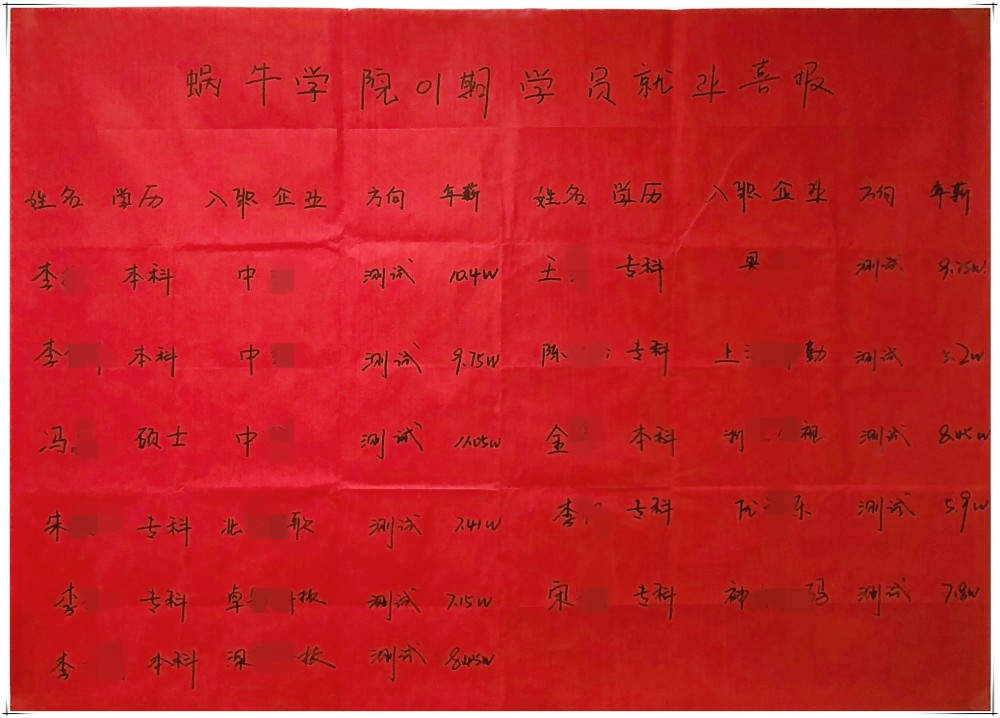 蜗牛学院01期学员就业喜报
姓名 学历 入职企业 方向 年薪 姓名 学历 入职企业 方向 年薪
李 本科 中 测试 10.4W 王 专科 奥 测试 9.75W
李 本科 中 测试 9.75W 陈 专科 上 勤 测试 5.2W
冯 硕士 中 测试 11.05W 金 本科 浙 视 测试 8.45W
朱 专科 北 软 测试 7.41W 李 专科 优 乐 测试 5.9W
李 专科 卓 测试 7.15W 宋 专科 神 码 测试 7.8W
李 本科 深 技 测试 8.45W